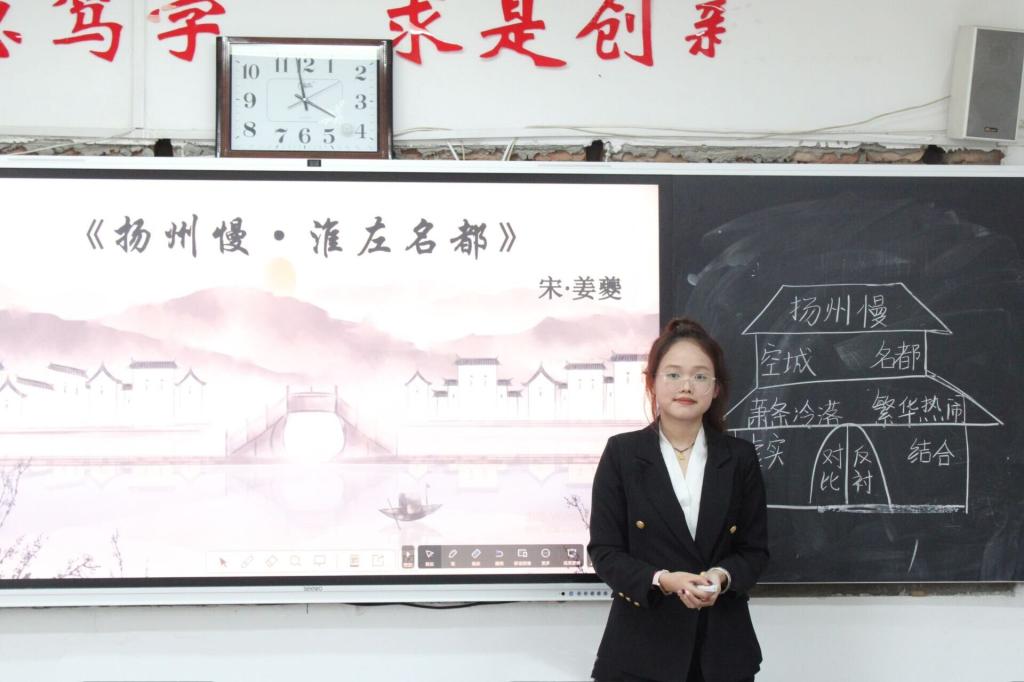 笃学 求是创新
11 12 1
10 2
9 3
8 4
7 6 5
《扬州慢·淮左名都》
宋·姜夔
扬州慢
空城 名都
萧条冷落 繁华热闹
实 对比 反衬 结合
seewo